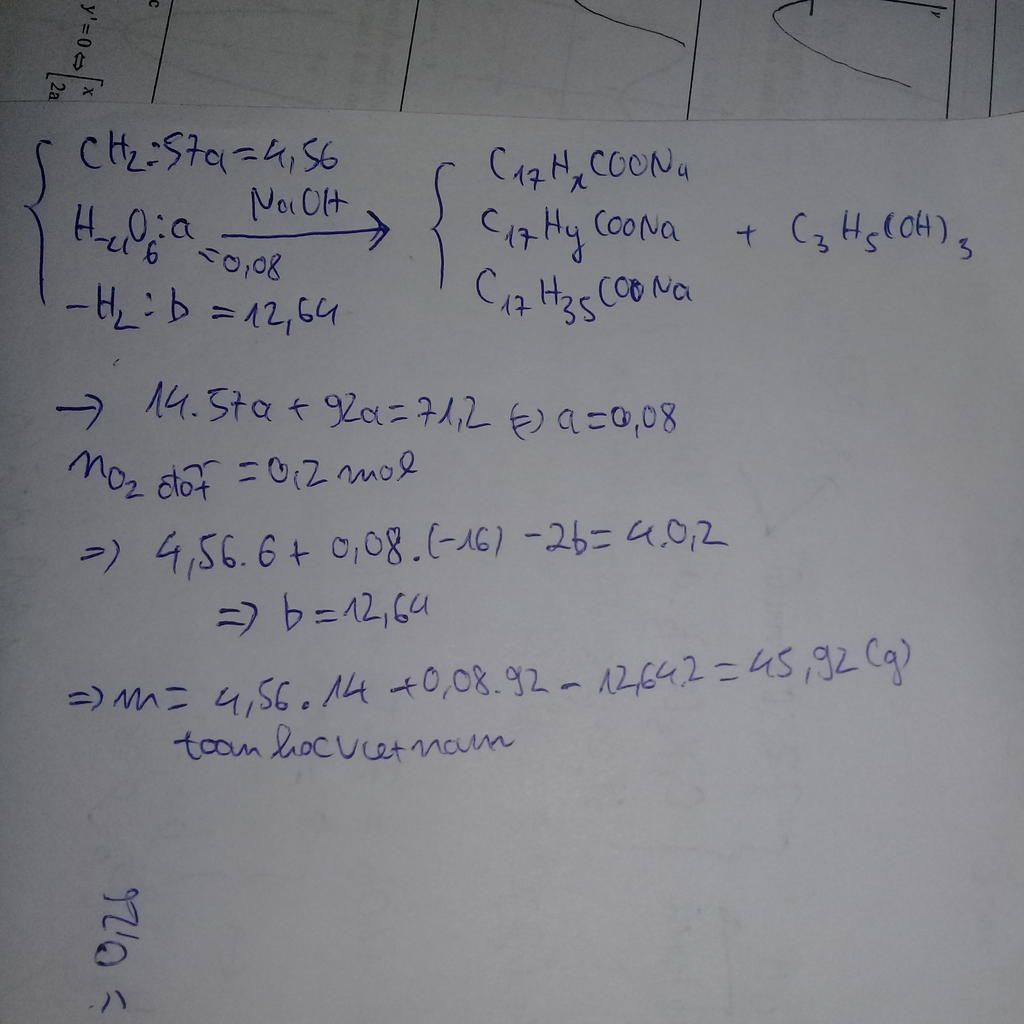 y' = 0 ⇔ [ x
2a
c
CH2: 57a = 4,56
H-4O6: a = 0,08
-H2: b = 12,64
NaOH →
C17HxCOONa
C17HyCOONa + C3H5(OH)3
C17H35COONa
→ 14.57a + 92a = 71,2 (=) a = 0,08
nO2 đốt = 0,2 mol
=> 4,56.6 + 0,08.(-16) - 2b = 4.0,2
=> b = 12,64
=> m = 4,56.14 + 0,08.92 - 12,64.2 = 45,92 (g)
toanhocvietnam